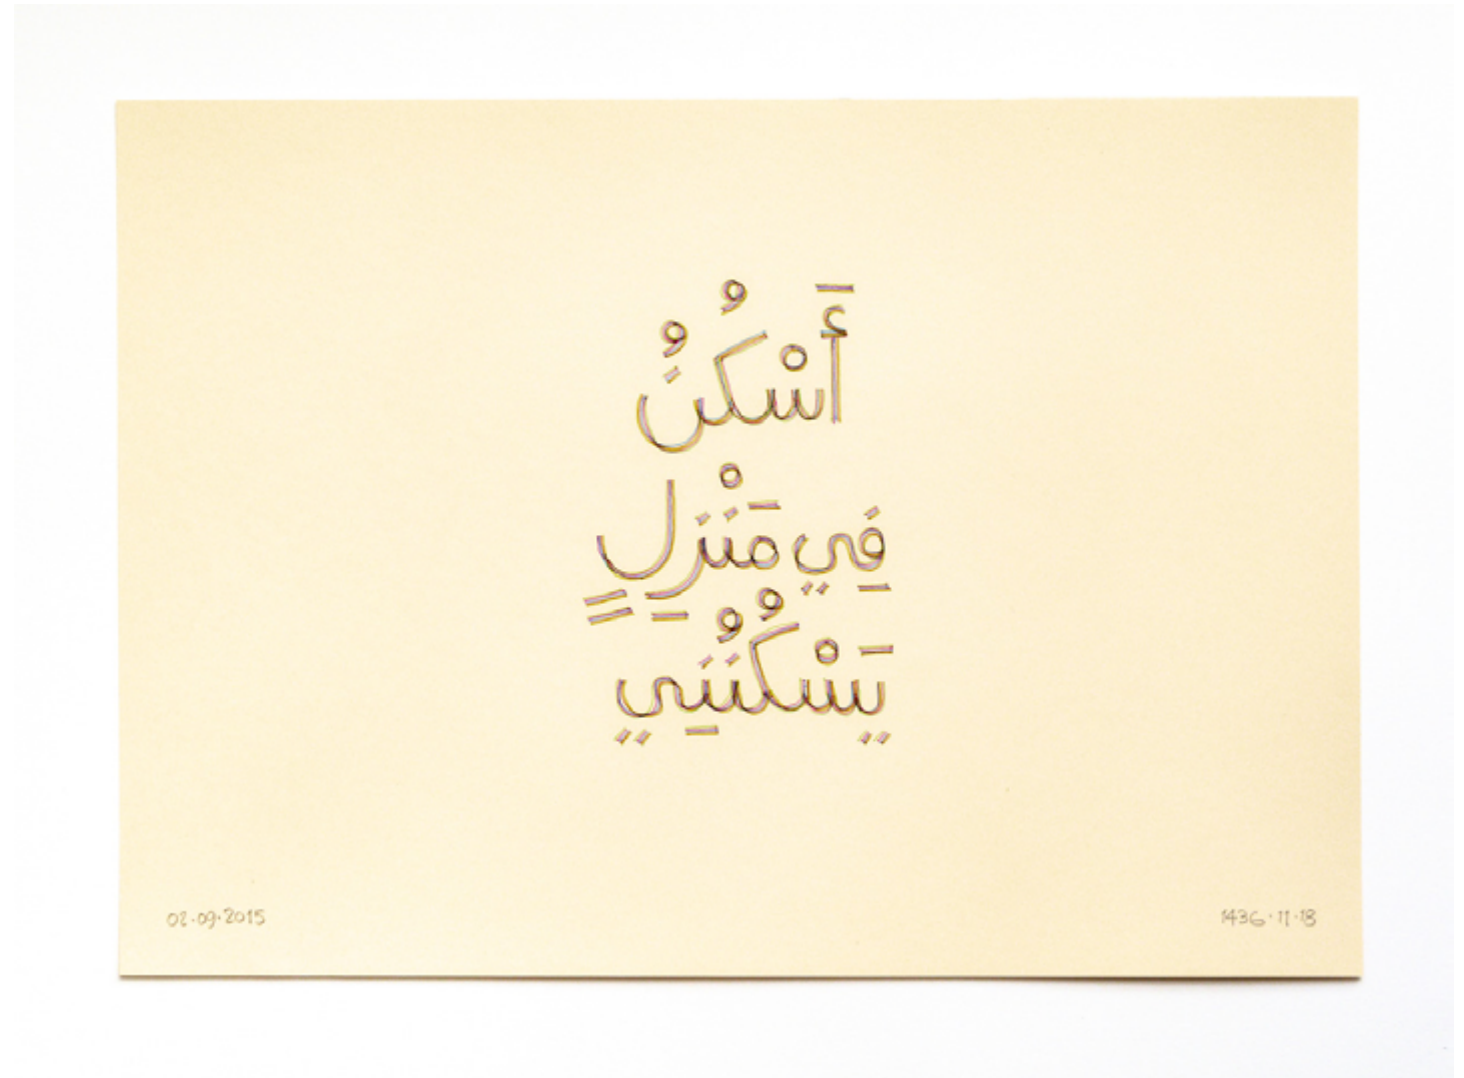 أَسْكُنُ
فِي مَنْزِلٍ
يَسْكُنُنِي
02.09.2015
1436.11.18